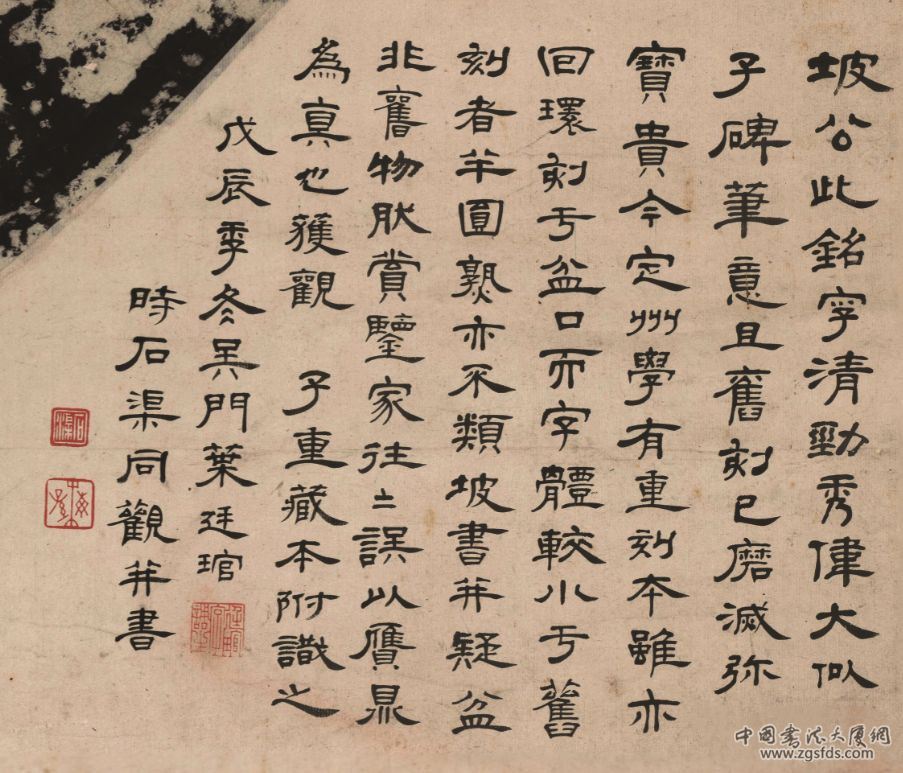 坡公此銘字清勁秀偉大似
子碑筆意且舊刻已磨滅弥
寶貴今定州學有重刻本雖亦
回環刻于盆口而字體較小于舊
刻者半圓熟亦不類坡書并疑盆
非舊物肰賞鑒家往二誤以贗鼎
為真也獲觀 子重藏本附識之
戊辰季冬吴門葉廷琯
時石渠同觀并書
石渠
中國书法大厦網
www.zgsfds.com